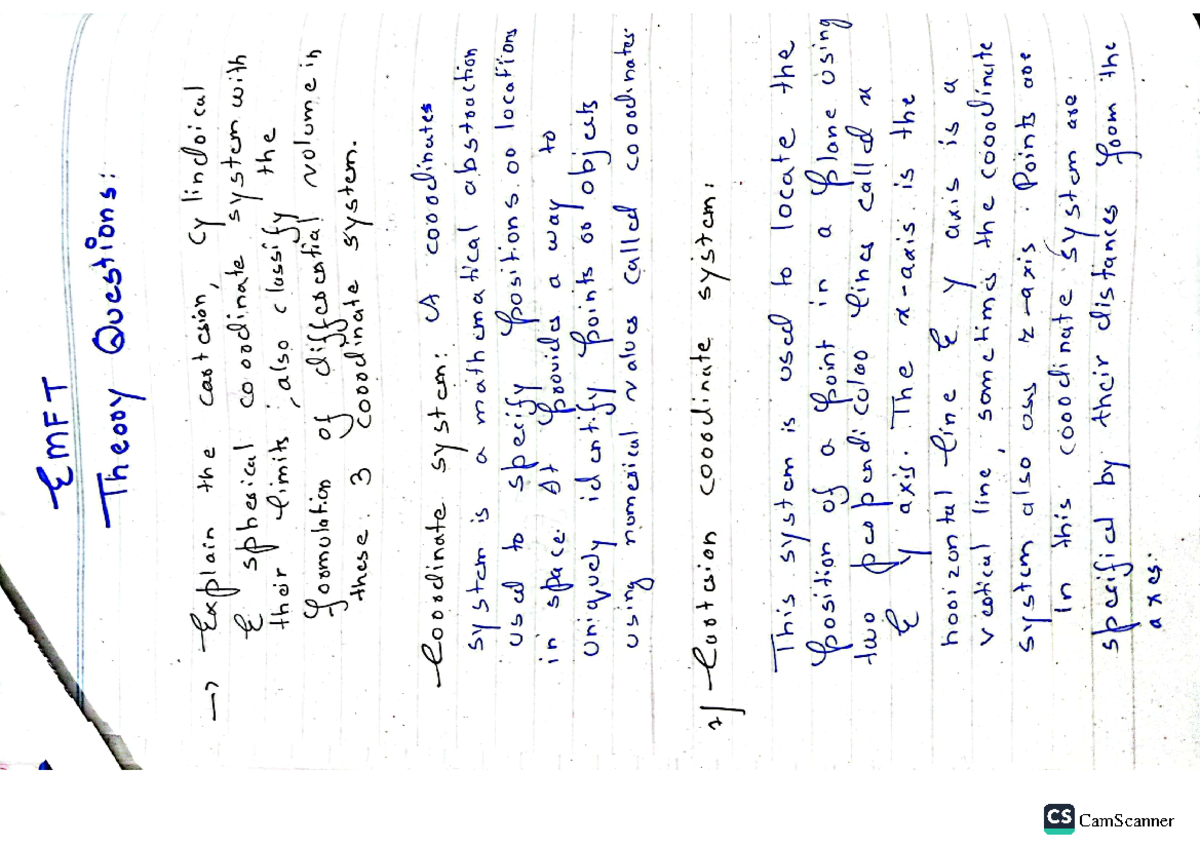 EMFT
Theory Questions:
→ Explain the cartesion, cylindrical
& spherical coordinate system with
their limits, also classify the
formulation of differential volume in
these 3 coordinate system.
Coordinate system: A coordinates
system is a mathematical abstraction
used to specify positions or locations
in space. It provides a way to
uniquely identify points or objects
using numerical values called coordinates
1) Cartesion coordinate system:
This system is used to locate the
position of a point in a plane using
two perpendicular lines called x
& y axis. The x-axis is the
horizontal line & y axis is a
vertical line, sometimes the coordinate
system also uses z-axis. Points are
in this coordinate system are
specified by their distances from the
axes.
CS CamScanner